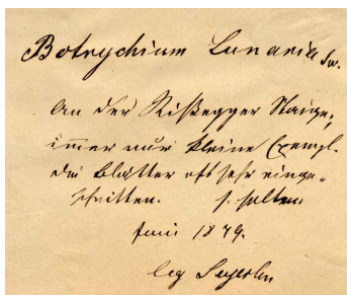 Botrychium Lunaria Sw.
An der Rißegger Staige;
immer nur kleine Exempl.
Die Blätter oft sehr einge-
schnitten. s. selten.
Juni 1879.
leg